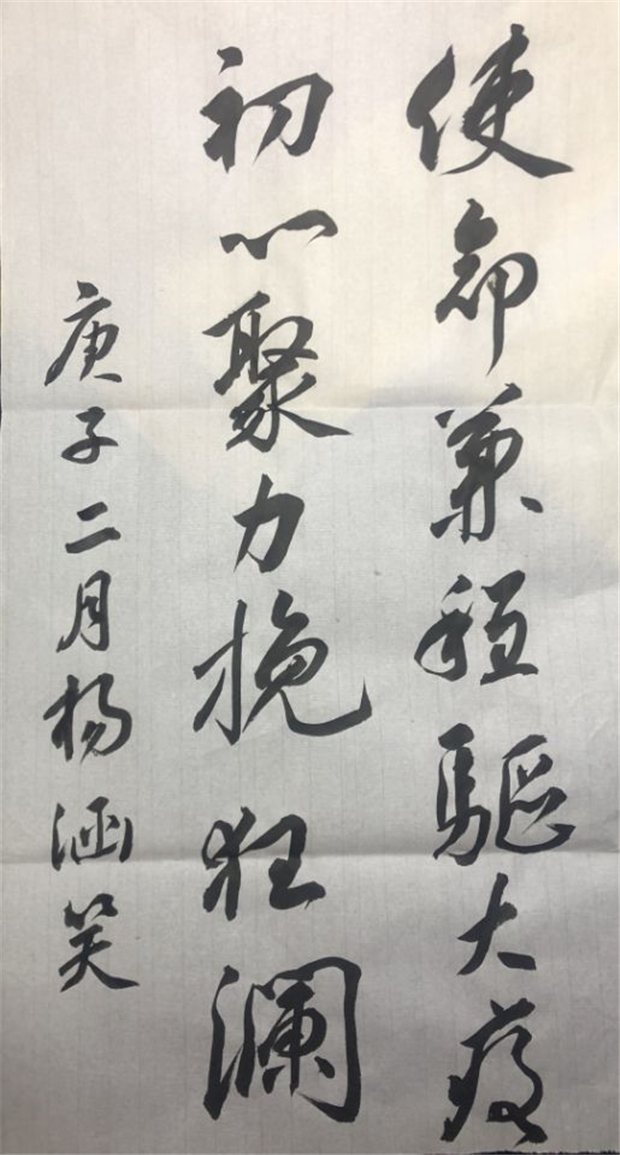 使命兼程驅大疫
初心聚力挽狂瀾
庚子二月杨涵笑